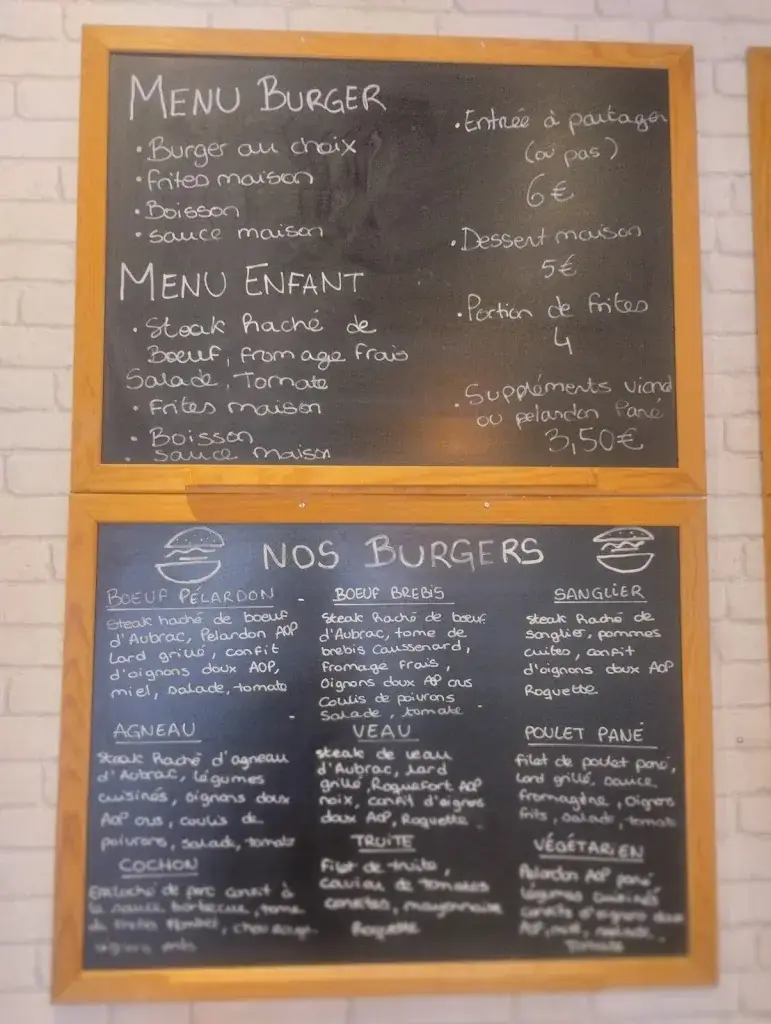 MENU BURGER
• Burger au choix
• frites maison
• Boisson
• sauce maison
MENU ENFANT
• Steak haché de
Boeuf, fromage frais
Salade, Tomate
• Frites maison
• Boisson
• sauce maison
• Entrée à partager
(ou pas)
6€
• Dessert maison
5€
• Portion de frites
4
• Suppléments viand
ou pelardon Pané
3,50€
NOS BURGERS
BOEUF PÉLARDON
Steak haché de boeuf
d'Aubrac, Pelardon AOP
Lard grillé, confit
d'oignons doux AOP,
miel, salade, tomate
BOEUF BREBIS
Steak haché de boeuf
d'Aubrac, tome de
brebis Caussenard,
fromage frais,
Oignons doux AOP crus
Coulis de poivrons
Salade, tomate
SANGLIER
Steak Haché de
sanglier, pommes
cuites, confit
d'oignons doux AOP
Roquette
AGNEAU
Steak Haché d'agneau
d'Aubrac, légumes
cuisinés, oignons doux
AOP crus, coulis de
poivrons, salade, tomate
VEAU
steak de veau
d'Aubrac, lard
grillé, Roquefort AOP
noix, confit d'oignons
doux AOP, Roquette
POULET PANÉ
filet de poulet pané,
Lard grillé, sauce
fromagère, oignons
frits, salade, tomate
COCHON
Effiloché de porc confit à
la sauce barbecue, tome
de, chou rouge
oignons
TRUITE
Filet de truite,
caviar de tomates
confites, mayonnaise
Roquette
VÉGÉTARIEN
Pelardon AOP pané
légumes cuisinés
confits d'oignons doux
AOP, salade,
Tomate